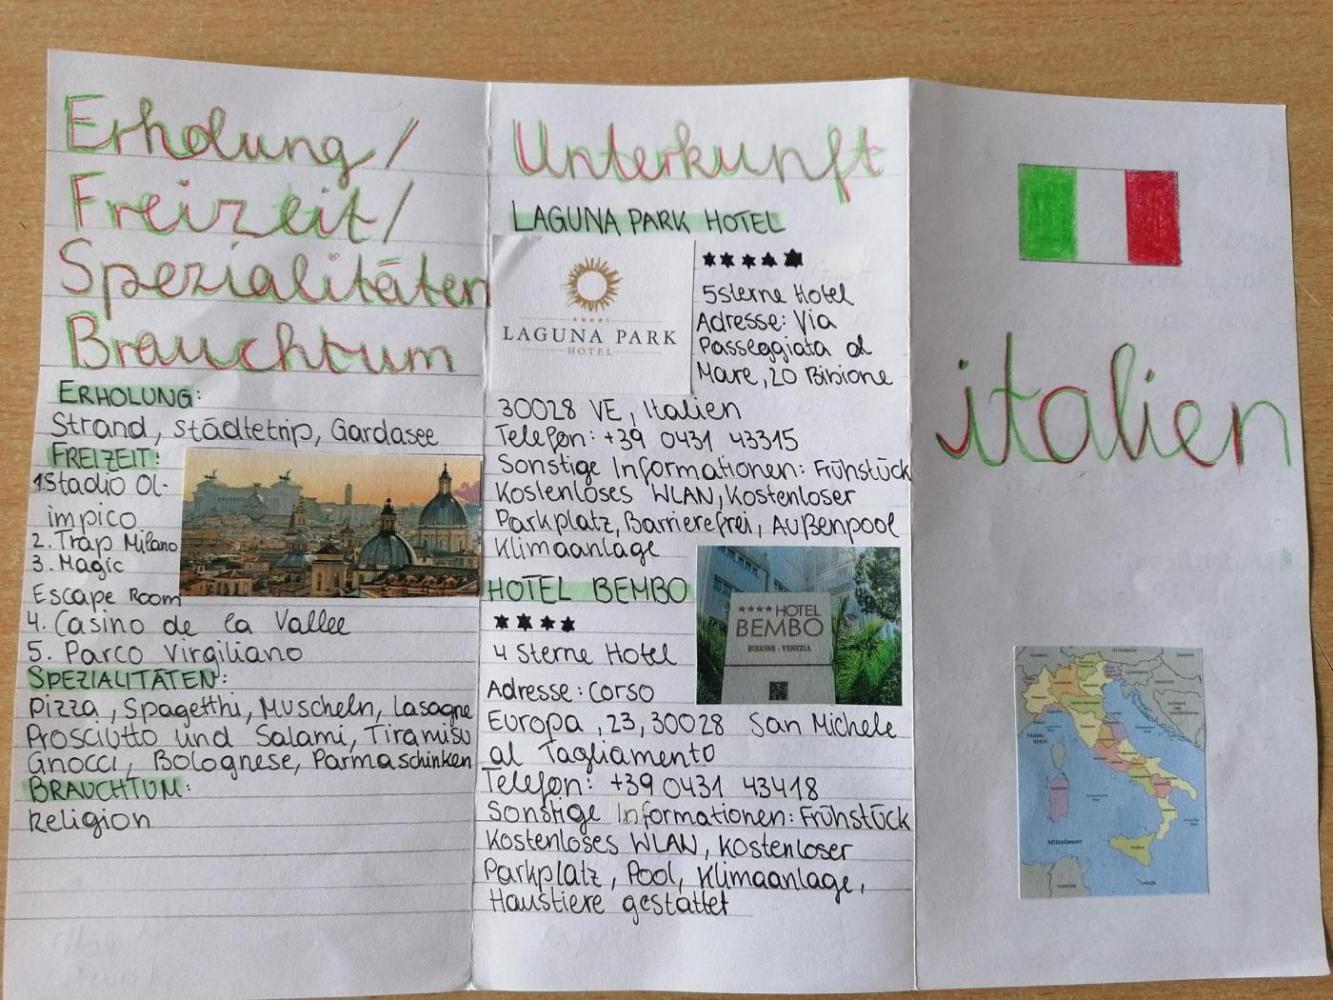 Erholung/
Freizeit/
Spezialitäten
Brauchtum
ERHOLUNG:
Strand, städtetrip, Gardasee
FREIZEIT:
1Stadio Ol-
impico
2. Trap Milano
3. Magic
Escape Room
4. Casino de la Vallee
5. Parco Virgiliano
SPEZIALITÄTEN:
Pizza, Spagetthi, Muscheln, Lasagne
Prosciutto und Salami, Tiramisu
Gnocci, Bolognese, Parmaschinken
BRAUCHTUM:
Religion
Unterkunft
LAGUNA PARK HOTEL
LAGUNA PARK
HOTEL
★★★★★
5sterne Hotel
Adresse: Via
Passeggiata al
Mare, 20 Bibione
30028 VE, Italien
Telefon: +39 0431 43315
Sonstige Informationen: Frühstück
Kostenloses WLAN, Kostenloser
Parkplatz, Barrierefrei, Außenpool
Klimaanlage
HOTEL BEMBO
★★★★
4 Sterne Hotel
★★★★ HOTEL
BEMBO
BIBIONE - VENEZIA
Adresse: Corso
Europa, 23, 30028 San Michele
al Tagliamento
Telefon: +39 0431 43418
Sonstige Informationen: Frühstück
Kostenloses WLAN, Kostenloser
Parkplatz, Pool, Klimaanlage,
Haustiere gestattet
italien
FRANK-
REICH
Mittelmeer